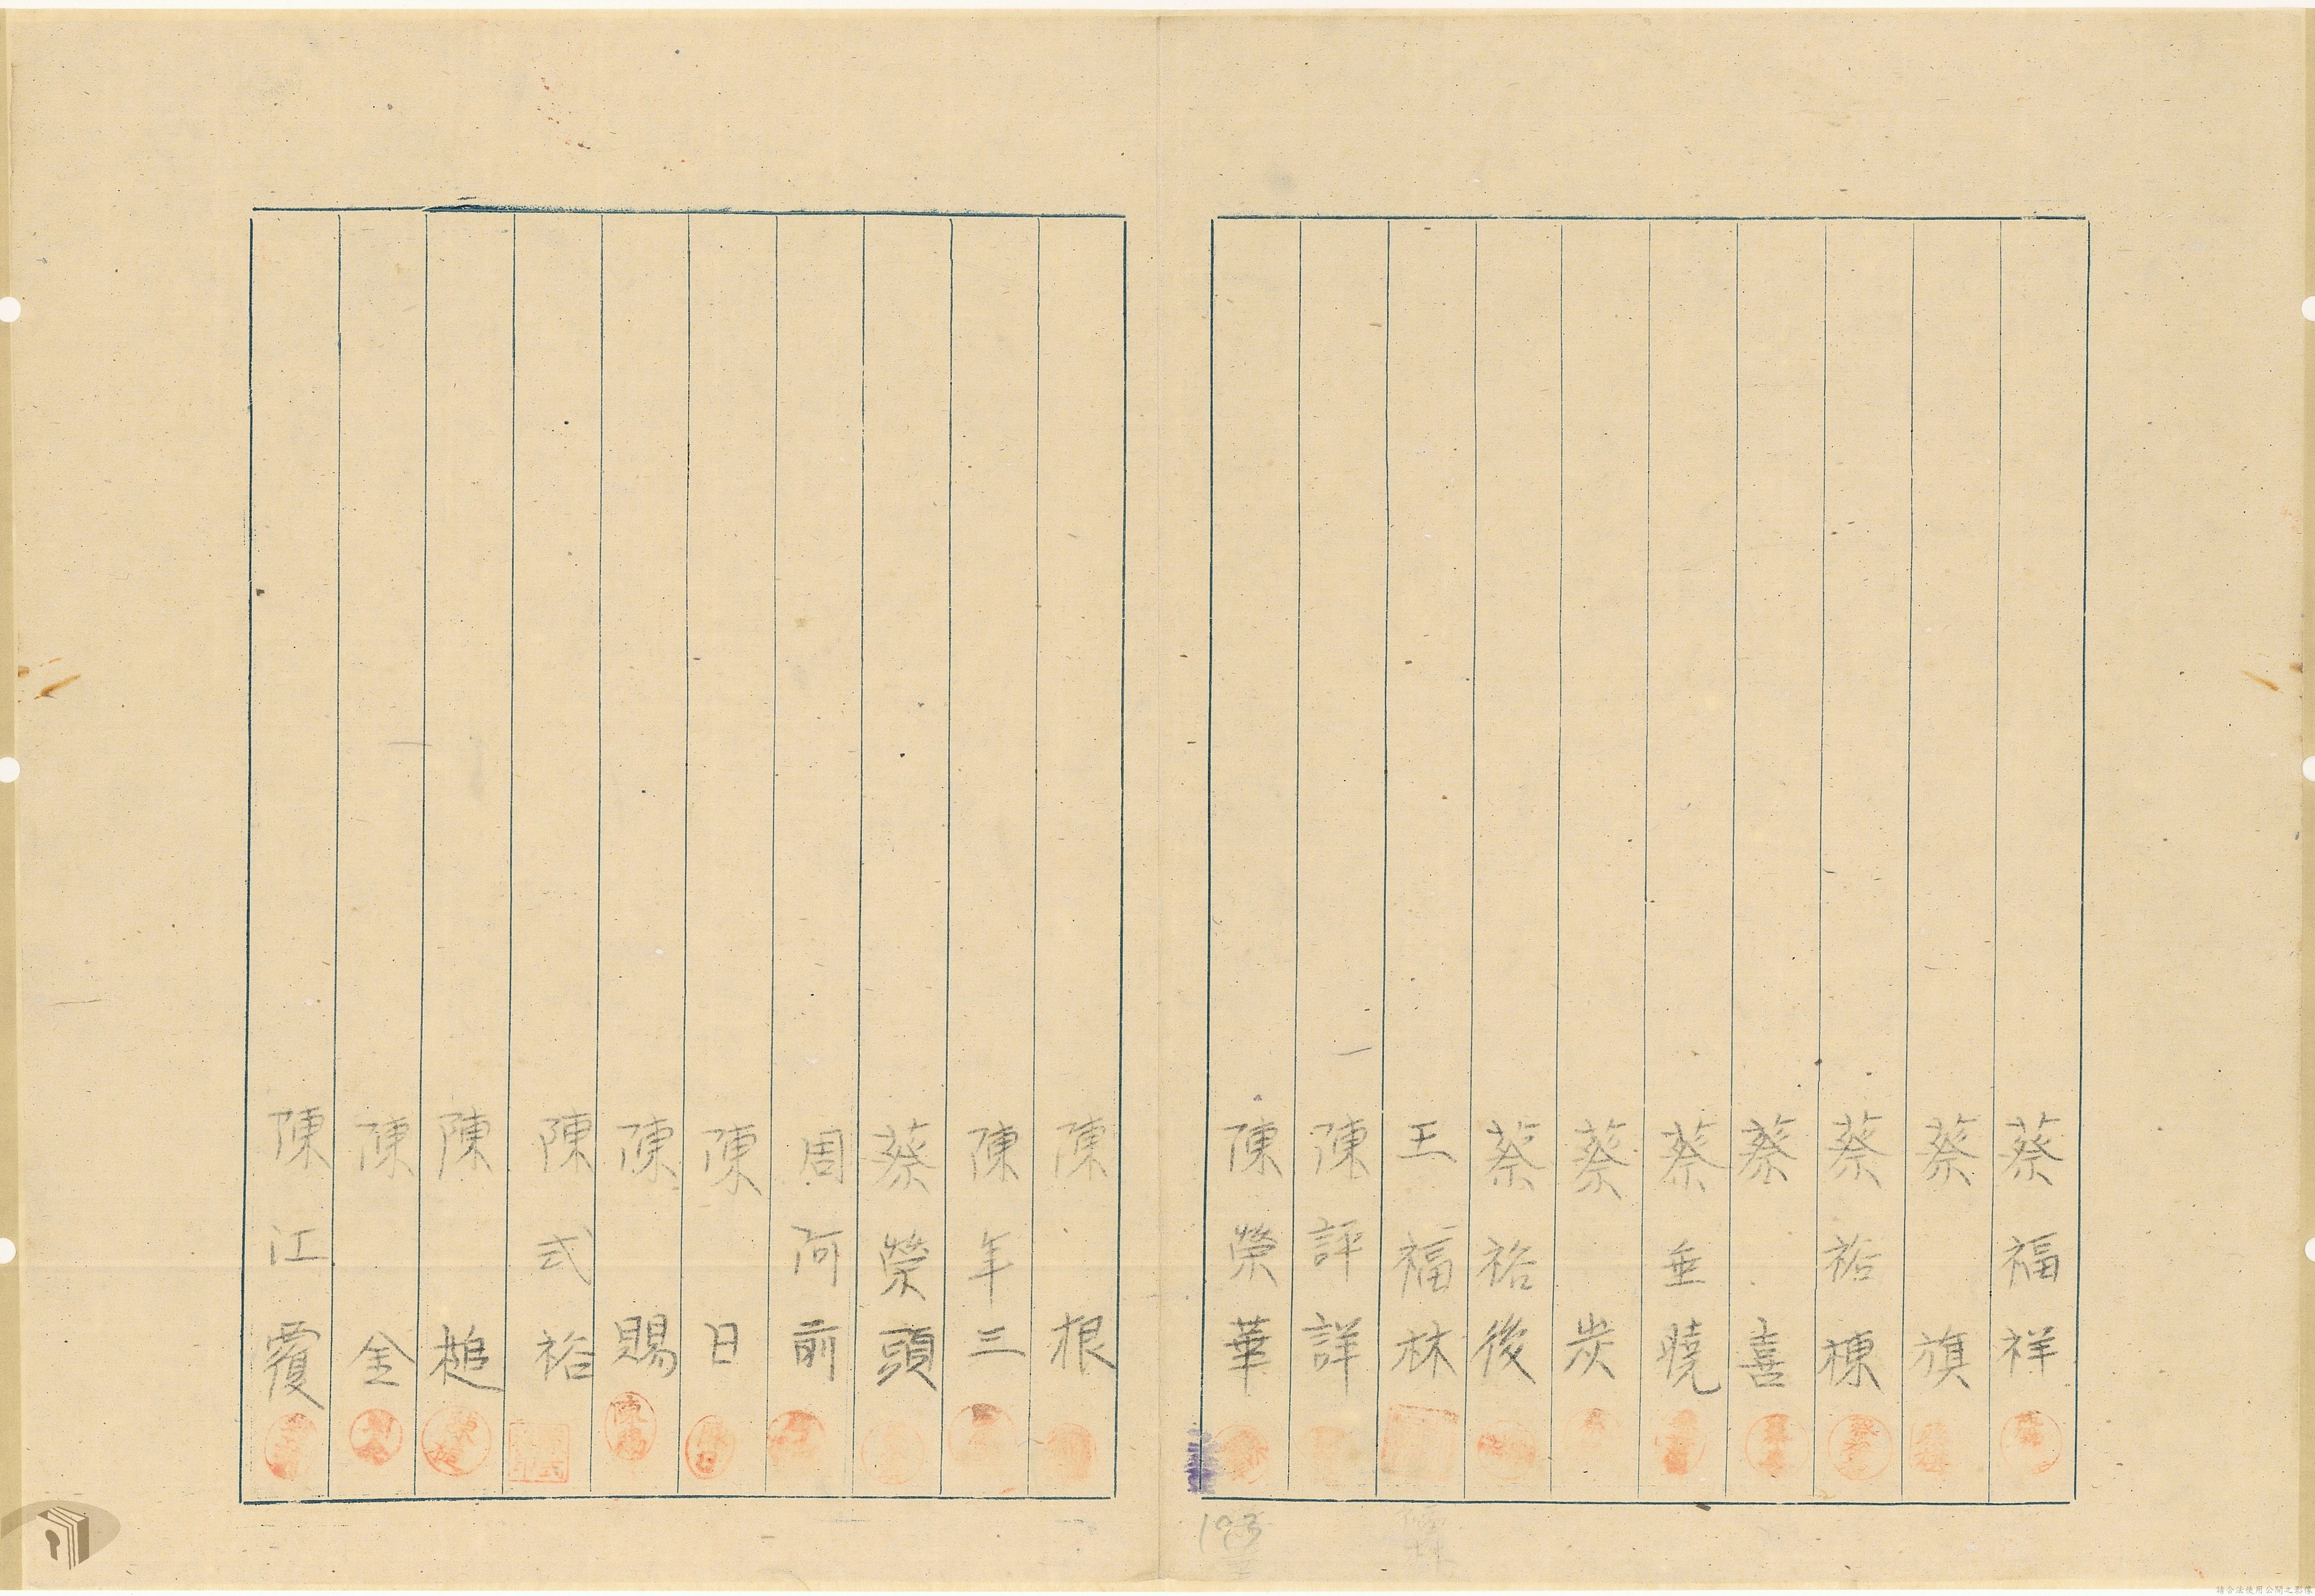 蔡福祥
蔡旗
蔡裕棟
蔡喜
蔡垂曉
蔡炭
蔡裕後
王福林
陳評詳
陳榮華
陳根
陳年三
蔡榮頭
周阿前
陳日
陳賜
陳式裕
陳槌
陳金
陳江覆
193
請合法使用公開之影像